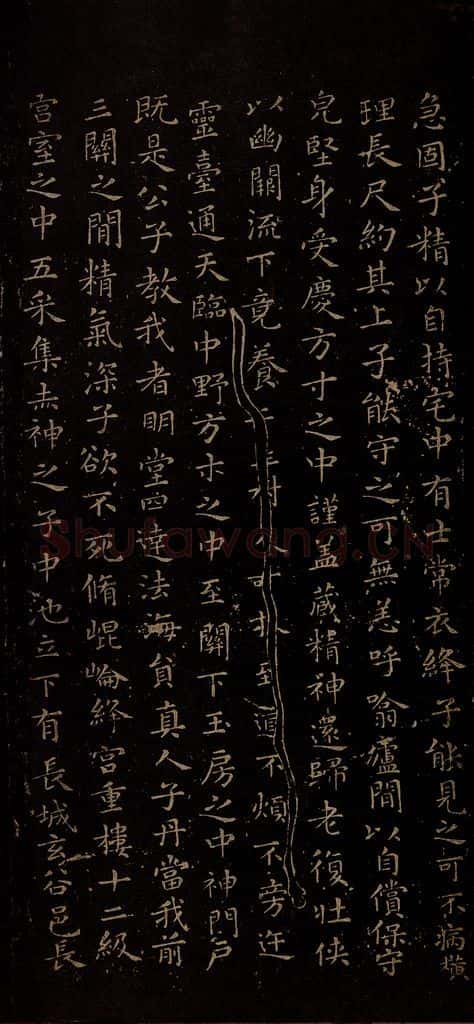 急固子精以自持宅中有士常衣絳子能見之可不病橫
理長尺約其上子能守之可無恙呼噏廬間以自償保守
皃堅身受慶方寸之中謹盖藏精神還歸老復壯俠
以幽關流下竟養至道不煩不旁迕
靈臺通天臨中野方寸之中至關下玉房之中神門戶
既是公子教我者明堂四達法海負真人子丹當我前
三關之間精氣深子欲不死脩崐崘絳宮重樓十二級
宮室之中五采集赤神之子中池立下有長城玄谷邑長
Shufawang.CN